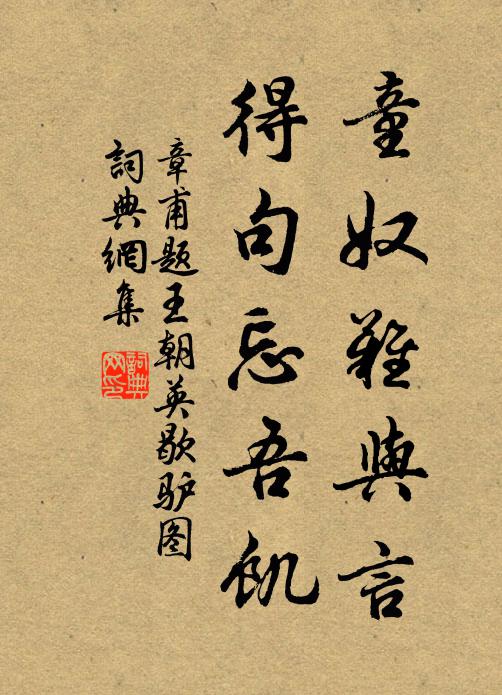 童奴難與言
得句忘吾飢
章甫题王朝英歇驴图
詞典網集
詞典網印